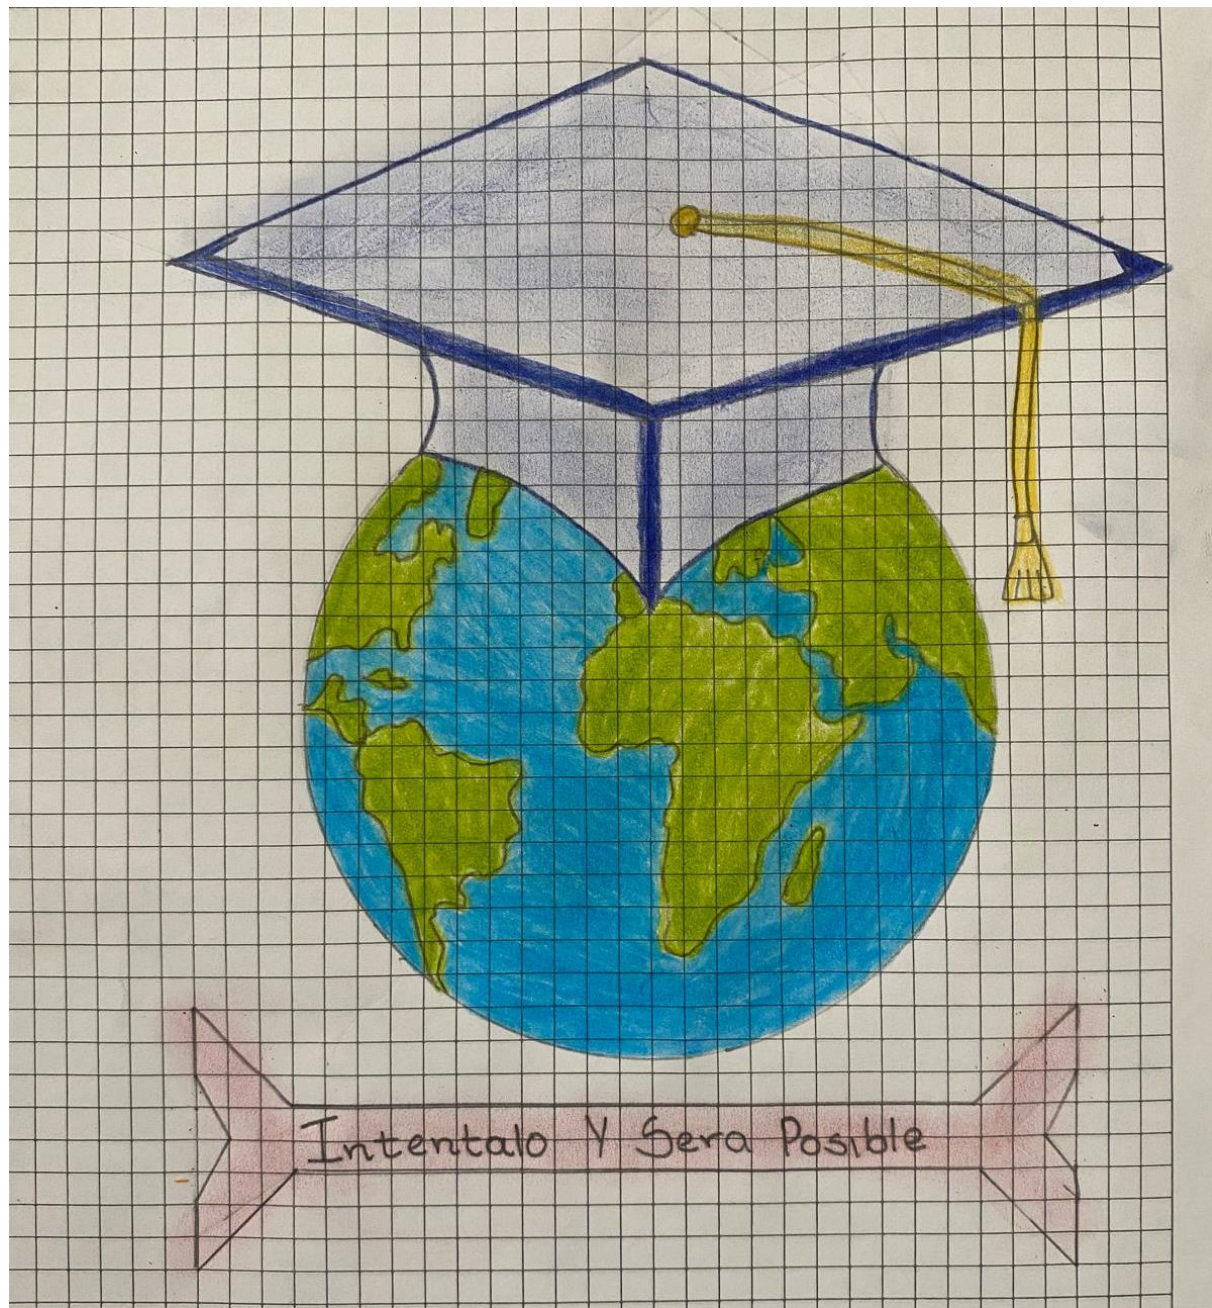 Intentalo Y Sera Posible